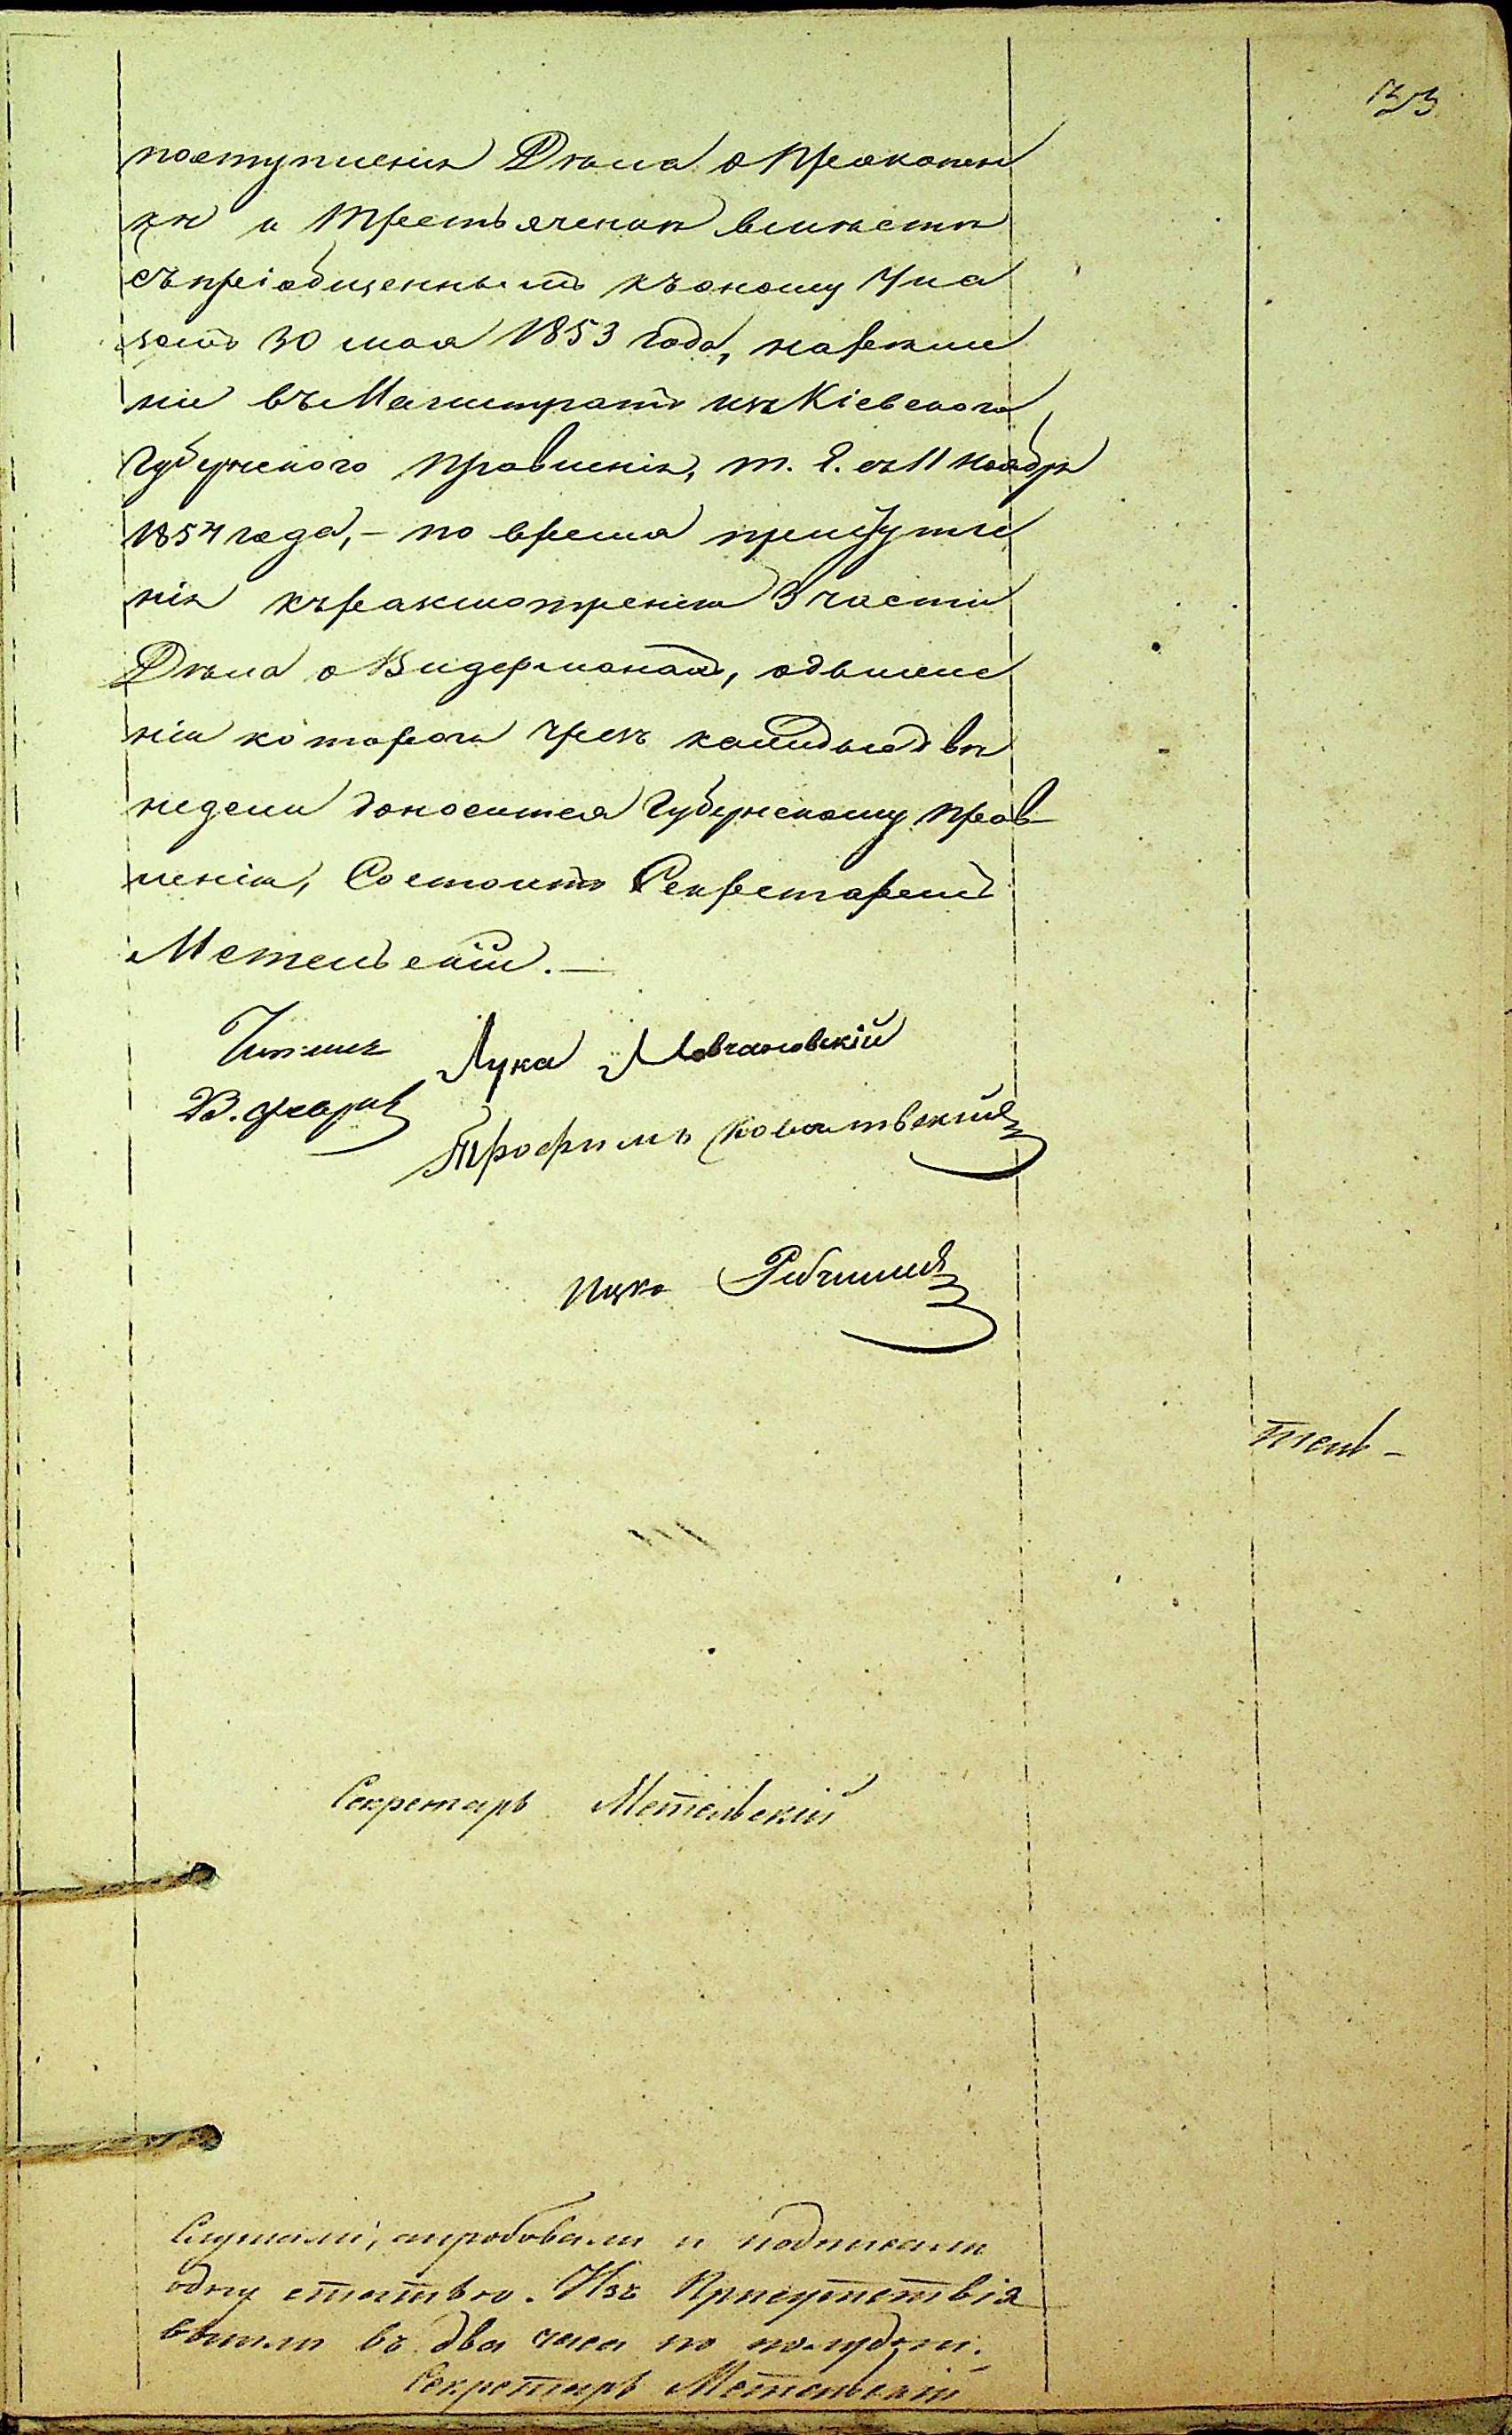 поступленія Дѣла о Прокопен
кѣ и Третьяченкѣ вмѣстѣ
съ пріобщеннымъ къ оному Ука
зомъ 30 мая 1853 года,
ніе въ Магистратъ изъ Кіевскаго
Губернскаго Правленія, т. е. съ 11 ноября
1854 года, – по время
нія къ разсмотренію 3 части
Дѣла о Видерманахъ, одвиже
ніи котораго чрезъ каждые двѣ
недели доносится Губернскому Прав–
ленію, Состоитъ Секретаремъ
Метельскій. —
Лука Мовчановскій
Трофимъ
Ицко
тель –
Секретарь Метельскій
Слушали, апробовали и подписали
одну статью. Изъ Присутствія
вышли въ два часа по полудни.
Секретарь Метельскій